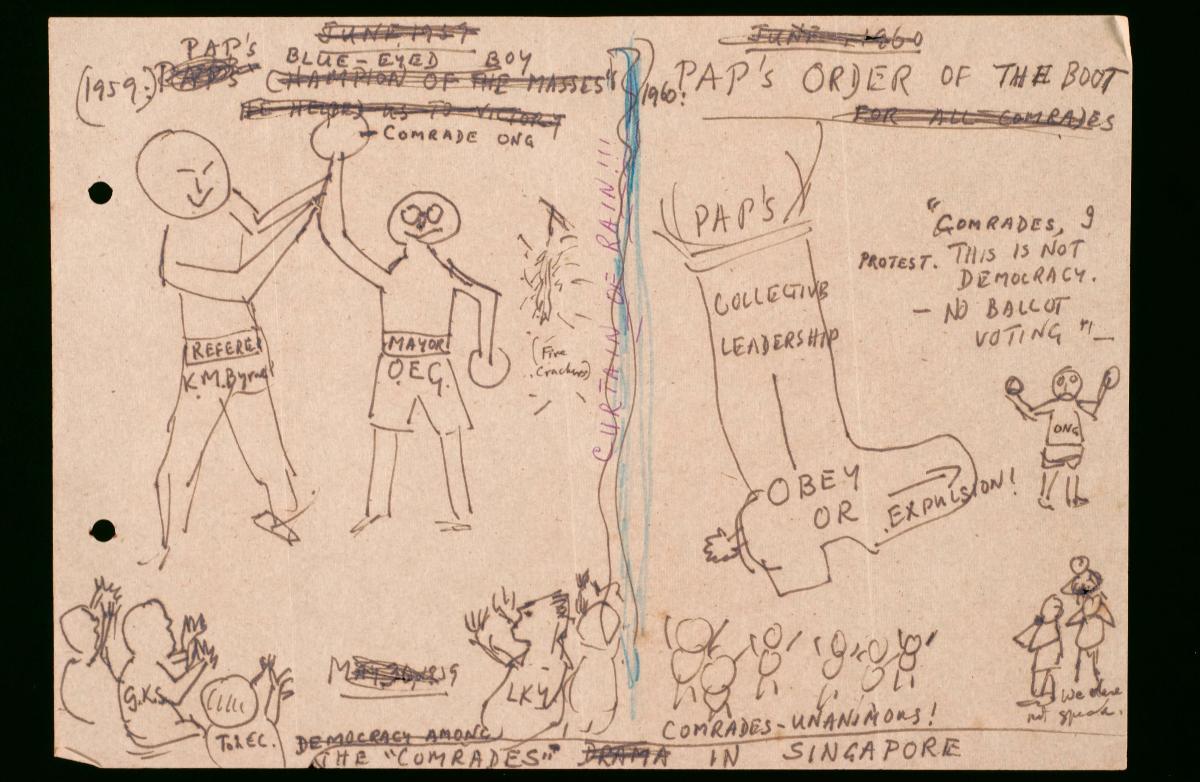 JUNE 1959
(1959:) PAP's PAP's
BLUE-EYED BOY
CHAMPION OF THE MASSES
HE HELPED US TO VICTORY
- COMRADE ONG
REFEREE
K.M. Byrne
MAYOR
O.E.G.
(Fire
Crackers)
G.K.S.
LKY
DEMOCRACY AMONG
THE "COMRADES" DRAMA IN SINGAPORE
CURTAIN OF RAIN!!!
JUNE 1960
1960: PAP'S ORDER OF THE BOOT
FOR ALL COMRADES
PAP'S
COLLECTIVE
LEADERSHIP
OBEY
OR EXPULSION!
"COMRADES, I
PROTEST. THIS IS NOT
DEMOCRACY.
- NO BALLOT
VOTING"! -
ONG
We dare
not speak.
COMRADES-UNANIMOUS!